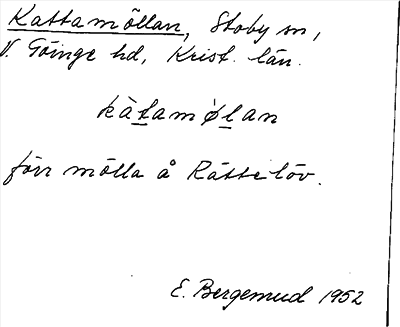 Kattamöllan, Stoby sn,
V. Göinge hd, Krist. län.
kàtamø̀lan
förr mölla å Rättelöv.
E. Bergemud 1952